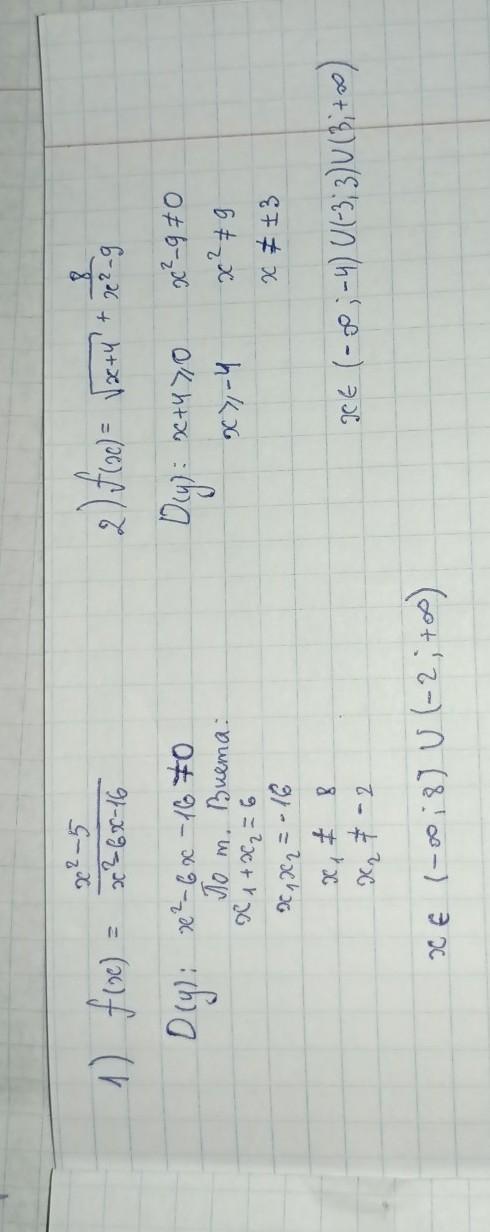 1) f(x) = x²-5 / x²-6x-16
D(y): x²-6x-16≠0
По т. Виета:
x₁+x₂=6
x₁x₂=-16
x₁ ≠ 8
x₂ ≠ -2
x ∈ (-∞; 8) ∪ (-2; +∞)
2) f(x) = √(x+4) + 8 / x²-9
D(y): x+4⩾0 x²-9≠0
x⩾-4 x²≠9
x ≠ ±3
x ∈ (-∞; -4) ∪ (-3; 3) ∪ (3; +∞)